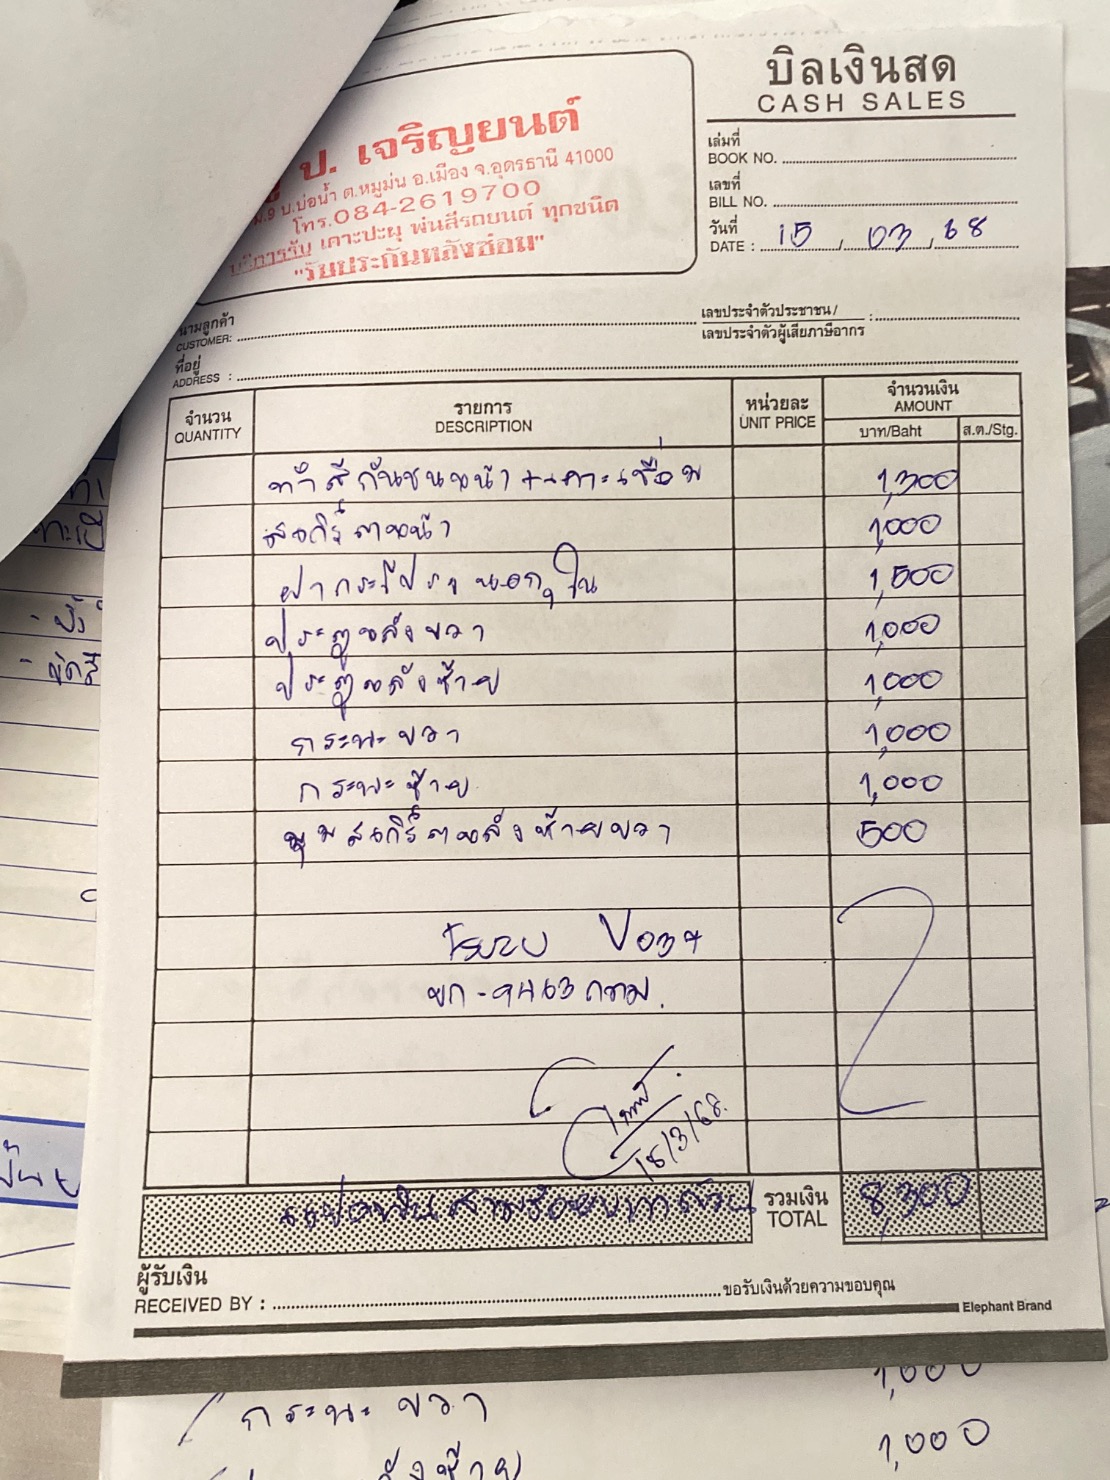 บิลเงินสด
CASH SALES
ป. เจริญยนต์
ม.9 บ.บ่อน้ำ ต.หมูม่น อ.เมือง จ.อุดรธานี 41000
โทร.084-2619700
บริการรับ เคาะปะผุ พ่นสีรถยนต์ ทุกชนิด
"รับประกันหลังซ่อม"
เล่มที่
BOOK NO.
เลขที่
BILL NO.
วันที่
DATE : 15 / 03 / 68
นามลูกค้า
CUSTOMER:
เลขประจำตัวประชาชน /
เลขประจำตัวผู้เสียภาษีอากร :
ที่อยู่
ADDRESS :
จำนวน รายการ หน่วยละ จำนวนเงิน
QUANTITY DESCRIPTION UNIT PRICE AMOUNT
บาท/Baht ส.ต./Stg.
ทำสีกันชนหน้า + เคาะเชื่อม 1,300
สเกิร์ตหน้า 1,000
ฝากระโปรง นอก, ใน 1,500
ประตูหลังขวา 1,000
ประตูหลังซ้าย 1,000
กระบะขวา 1,000
กระบะซ้าย 1,000
มุมสเกิร์ตหลังซ้ายขวา 500
ISUZU V034
ยก-9463 กทม.
15/3/68.
แปดพันสามร้อยบาทถ้วน รวมเงิน 8,300
TOTAL
ผู้รับเงิน
RECEIVED BY : ขอรับเงินด้วยความขอบคุณ
Elephant Brand
1,000
กระบะขวา
1,000
หลังซ้าย